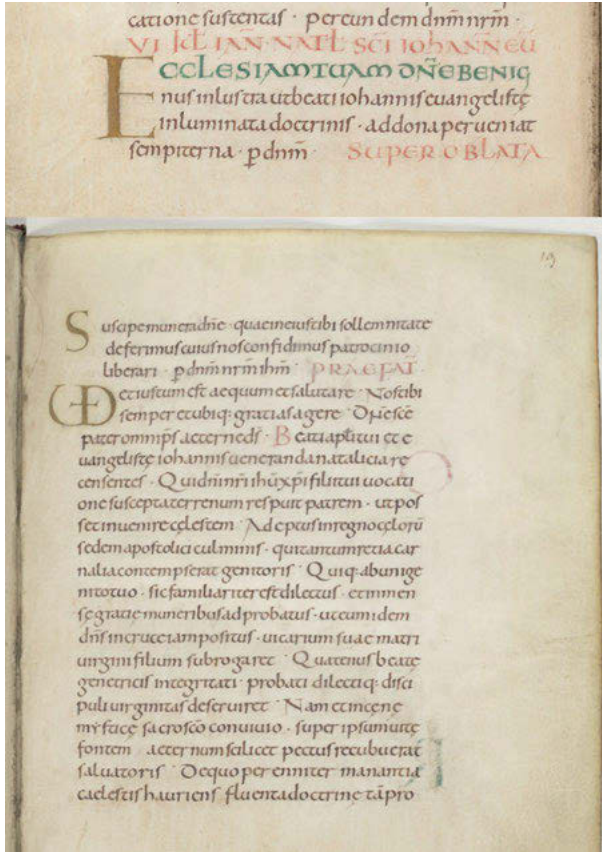 catione sustentas · per eundem dn̄m nr̄m ·
VI KL̄ IAN · NATL̄ SC̄I IOHANNIS EU
ECCLESIAM TUAM DN̄E BENIG
nus inlustra ut beati iohannis euangelistę
inluminata doctrinis · ad dona perueniat
sempiterna · ꝑ dn̄m · SUPER OBLATA
19
Suscipe munera dn̄e · quae in eius tibi sollemnitate
deferimus cuius nos confidimus patrocinio
liberari · ꝑ dn̄m nr̄m ih̄m · PRAEFAT̄
UD et iustum est aequum et salutare · Nos tibi
semper et ubiq: gratias agere · Dn̄e sc̄e
pater omnip̄s aeterne ds̄ · Beati apl̄i tui et e
uangelistę iohannis ueneranda natalicia re
censentes · Qui dn̄i nr̄i ih̄u xp̄i filii tui uocati
one suscepta terrenum respuit patrem · ut pos
set inuenire cęlestem · Adeptus in regno cęlorū
sedem apostolici culminis · qui tantum retia car
nalia contempserat genitoris · Quiq: ab unige
nito tuo · sic familiariter est dilectus · et inmen
sę gratię muneribus adprobatus · ut eum idem
dn̄s in cruce iam positus · uicarium suae matri
uirgini filium subrogaret · Quatenus beatę
genetricis integritati · probati dilectiq: disci
puli uirginitas deseruiret · Nam et in cęnę
mysticę sacrosc̄o conuiuio · super ipsum uitę
fontem aeternum scilicet pectus recubuerat
saluatoris · De quo perenniter manantia
caelestis hauriens fluenta doctrinę tā pro